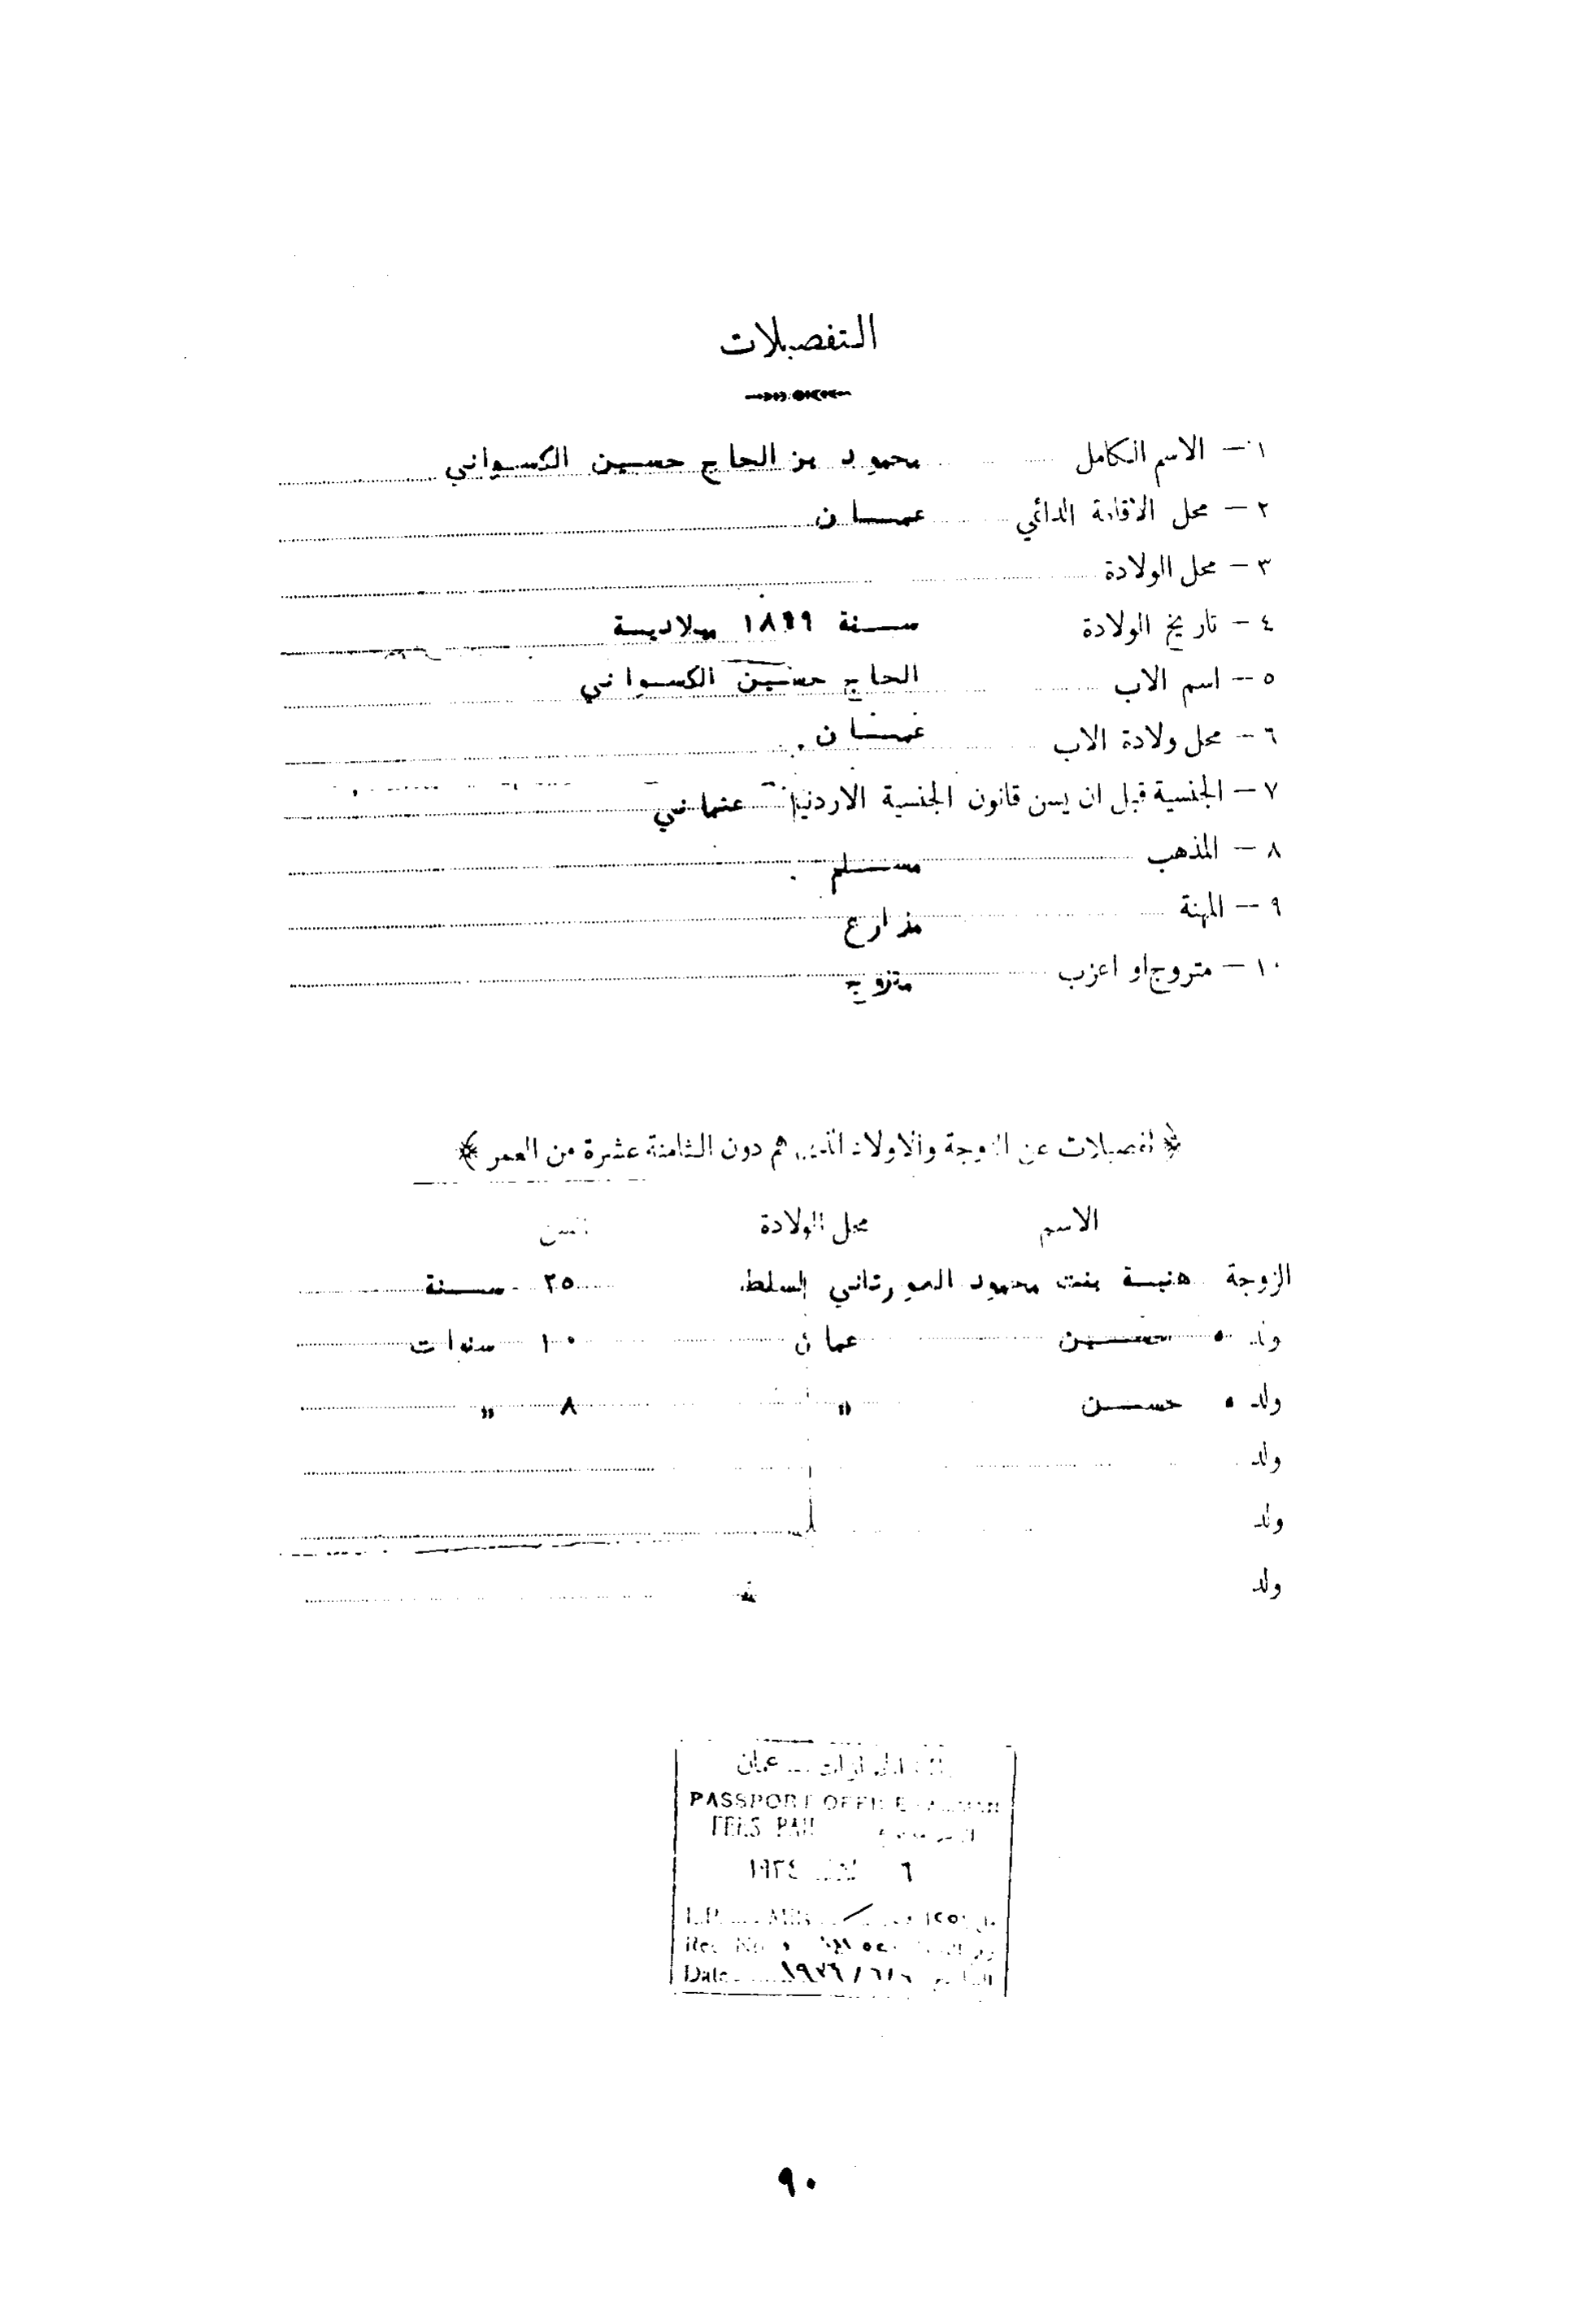 التفصيلات
١ – الاسم الكامل محمود بن الحاج حسين الكسواني
٢ – محل الاقامة الدائمي عمــان
٣ – محل الولادة
٤ – تاريخ الولادة سنة ١٨٩٩ ميلادية
٥ – اسم الاب الحاج حسين الكسواني
٦ – محل ولادة الاب عمــان
٧ – الجنسية قبل ان يسن قانون الجنسية الاردنية عثماني
٨ – المذهب مسلم
٩ – المهنة مزارع
١٠ – متزوج او اعزب متزوج
﴿ تفصيلات عن الزوجة والاولاد الذين هم دون الثامنة عشرة من العمر ﴾
الاسم محل الولادة السن
الزوجة هنية بنت محمود السلط ٢٥ سنة
ولد ه حسين عمان ١٠ سنوات
ولد ه حسن " ٨ "
ولد
ولد
ولد
عمان
PASSPORT OFFICE AMMAN
FEES PAID
٦ ١٩٣٤
Date
٩٠